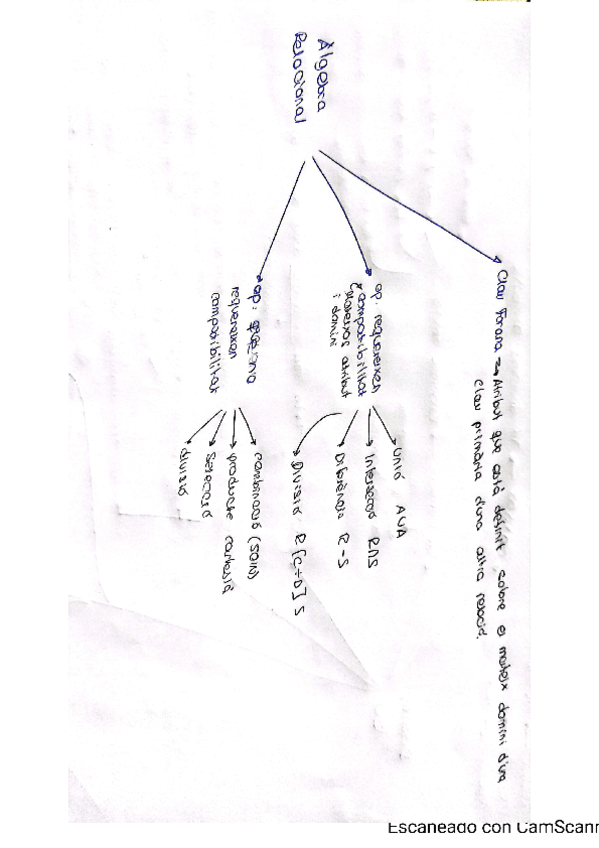 Àlgebra
Relacional
Clau Forana → Atribut que està definit sobre el mateix domini d'una
clau primària d'una altra relació.
op. requereixen
compatibilitat
atribut
i domini
Unió AUA
Intersecció R∩S
Diferència R-S
Divisió R[C÷D]S
op: que no
requereixen
compatibilitat
combinació (JOIN)
producte cartesià
Selecció
divisió
Escaneado con CamScann